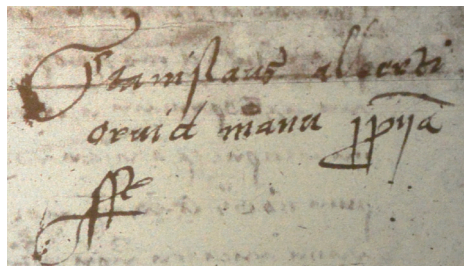 Stanislaus alberti
oruid manu ppria